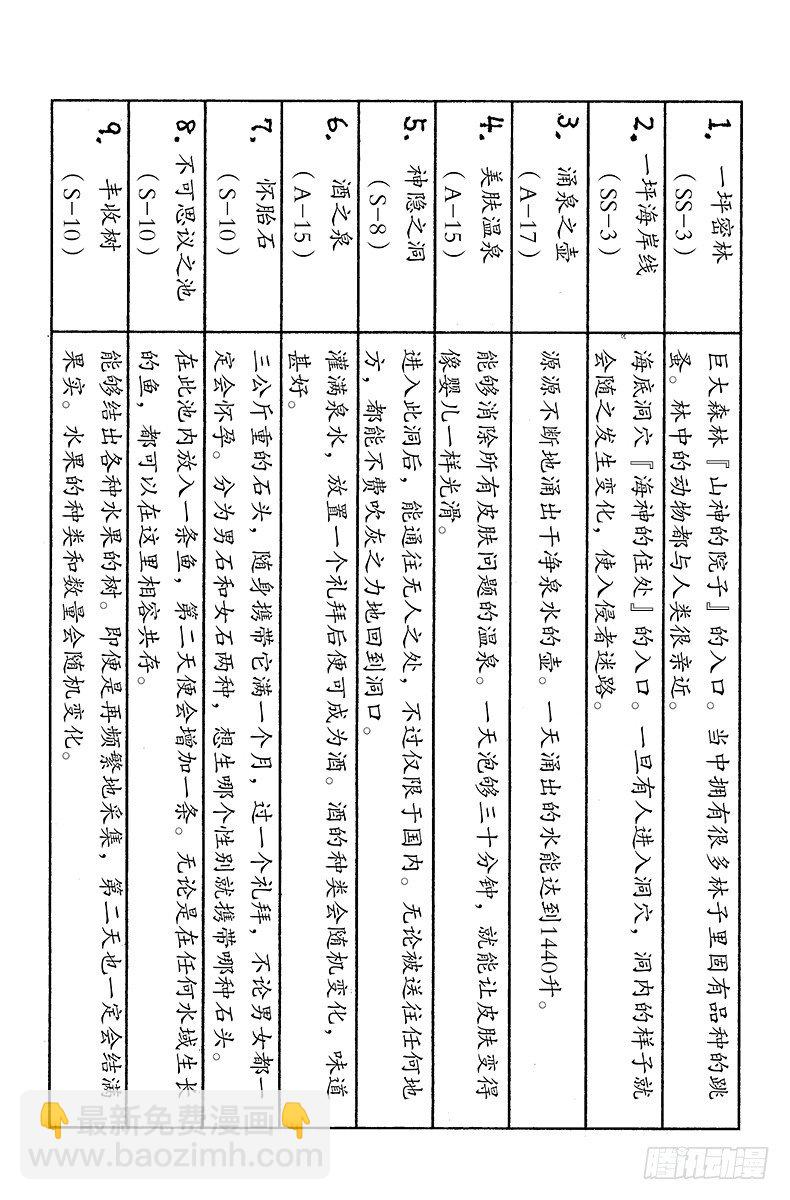 1. 一坪密林
(SS-3)
巨大森林『山神的院子』的入口。当中拥有很多林子里固有品种的跳
蚤。林中的动物都与人类很亲近。
2. 一坪海岸线
(SS-3)
海底洞穴『海神的住处』的入口。一旦有人进入洞穴，洞内的样子就
会随之发生变化，使入侵者迷路。
3. 涌泉之壶
(A-17)
源源不断地涌出干净泉水的壶。一天涌出的水能达到1440升。
4. 美肤温泉
(A-15)
能够消除所有皮肤问题的温泉。一天泡够三十分钟，就能让皮肤变得
像婴儿一样光滑。
5. 神隐之洞
(S-8)
进入此洞后，能通往无人之处，不过仅限于国内。无论被送往任何地
方，都能不费吹灰之力地回到洞口。
6. 酒之泉
(A-15)
灌满泉水，放置一个礼拜后便可成为酒。酒的种类会随机变化，味道
甚好。
7. 怀胎石
(S-10)
三公斤重的石头，随身携带它满一个月，过一个礼拜，不论男女都一
定会怀孕。分为男石和女石两种，想生哪个性别就携带哪种石头。
8. 不可思议之池
(S-10)
在此池内放入一条鱼，第二天便会增加一条。无论是在任何水域生长
的鱼，都可以在这里相容共存。
9. 丰收树
(S-10)
能够结出各种水果的树。即便是再频繁地采集，第二天也一定会结满
果实。水果的种类和数量会随机变化。
最新免费漫画
www.baozimh.com
腾讯动漫